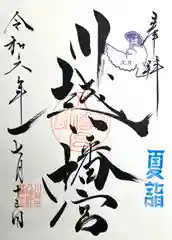 奉拝
夏詣
川越八幡宮
令和六年
七月十三日